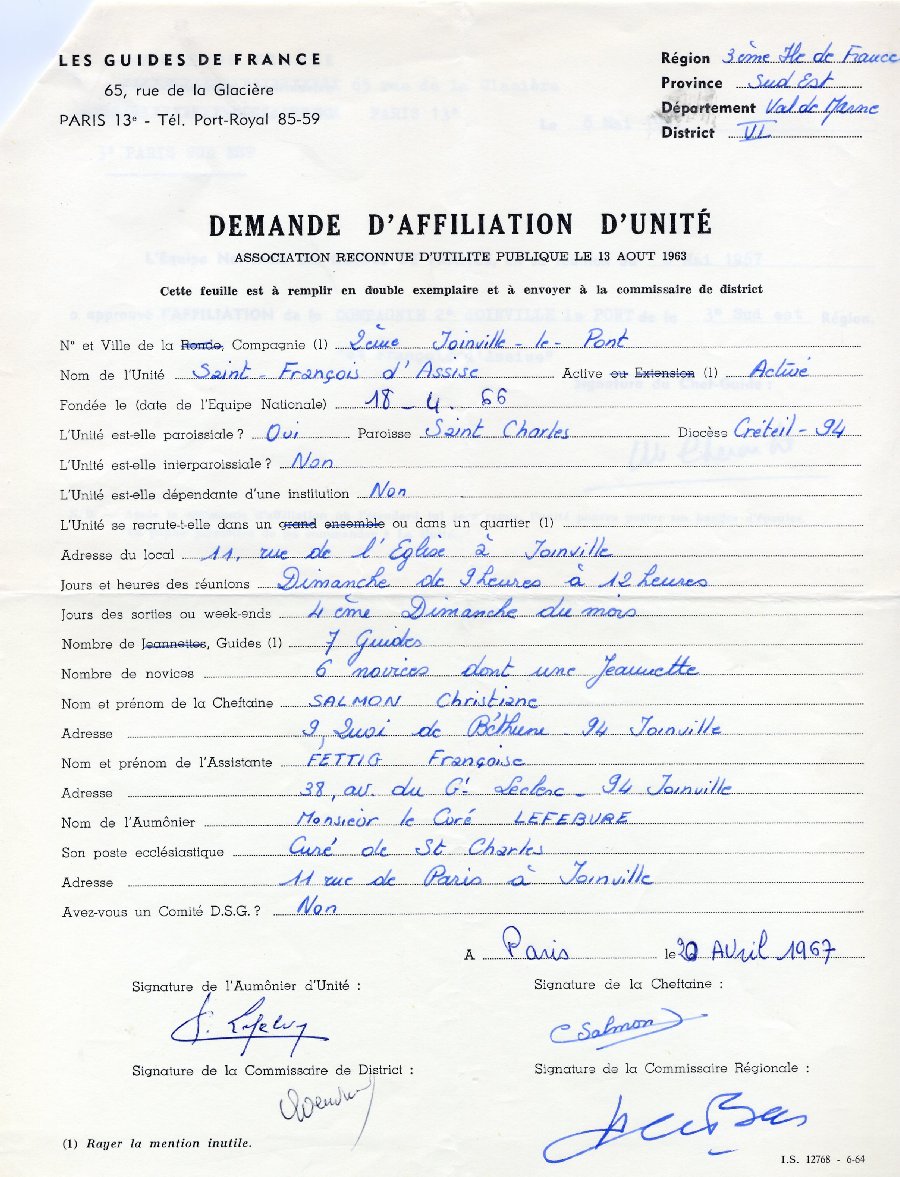 LES GUIDES DE FRANCE
65, rue de la Glacière
PARIS 13e - Tél. Port-Royal 85-59
Région 3ème Ile de France
Province Sud Est
Département Val de Marne
District VL
DEMANDE D'AFFILIATION D'UNITÉ
ASSOCIATION RECONNUE D'UTILITE PUBLIQUE LE 13 AOUT 1963
Cette feuille est à remplir en double exemplaire et à envoyer à la commissaire de district
N° et Ville de la Ronde, Compagnie (1) 2ème Joinville-le-Pont
Nom de l'Unité Saint-François d'Assise Active ou Extension (1) Active
Fondée le (date de l'Equipe Nationale) 18-4.66
L'Unité est-elle paroissiale ? Oui Paroisse Saint Charles Diocèse Créteil-94
L'Unité est-elle interparoissiale ? Non
L'Unité est-elle dépendante d'une institution Non
L'Unité se recrute-t-elle dans un grand ensemble ou dans un quartier (1)
Adresse du local 11, rue de l'Eglise à Joinville
Jours et heures des réunions Dimanche de 9 heures à 12 heures
Jours des sorties ou week-ends 4ème Dimanche du mois
Nombre de Jeannettes, Guides (1) 7 Guides
Nombre de novices 6 novices dont une Jeannette
Nom et prénom de la Cheftaine SALMON Christiane
Adresse 9, Quai de Béthune 94 Joinville
Nom et prénom de l'Assistante FETTIG Françoise
Adresse 38, av. du Gl Leclerc - 94 Joinville
Nom de l'Aumônier Monsieur le Curé LEFEBURE
Son poste ecclésiastique Curé de St Charles
Adresse 11 rue de Paris à Joinville
Avez-vous un Comité D.S.G. ? Non
A Paris le 20 Avril 1967
Signature de l'Aumônier d'Unité :
Signature de la Cheftaine :
C Salmon
Signature de la Commissaire de District :
Signature de la Commissaire Régionale :
(1) Rayer la mention inutile.
I.S. 12768 - 6-64